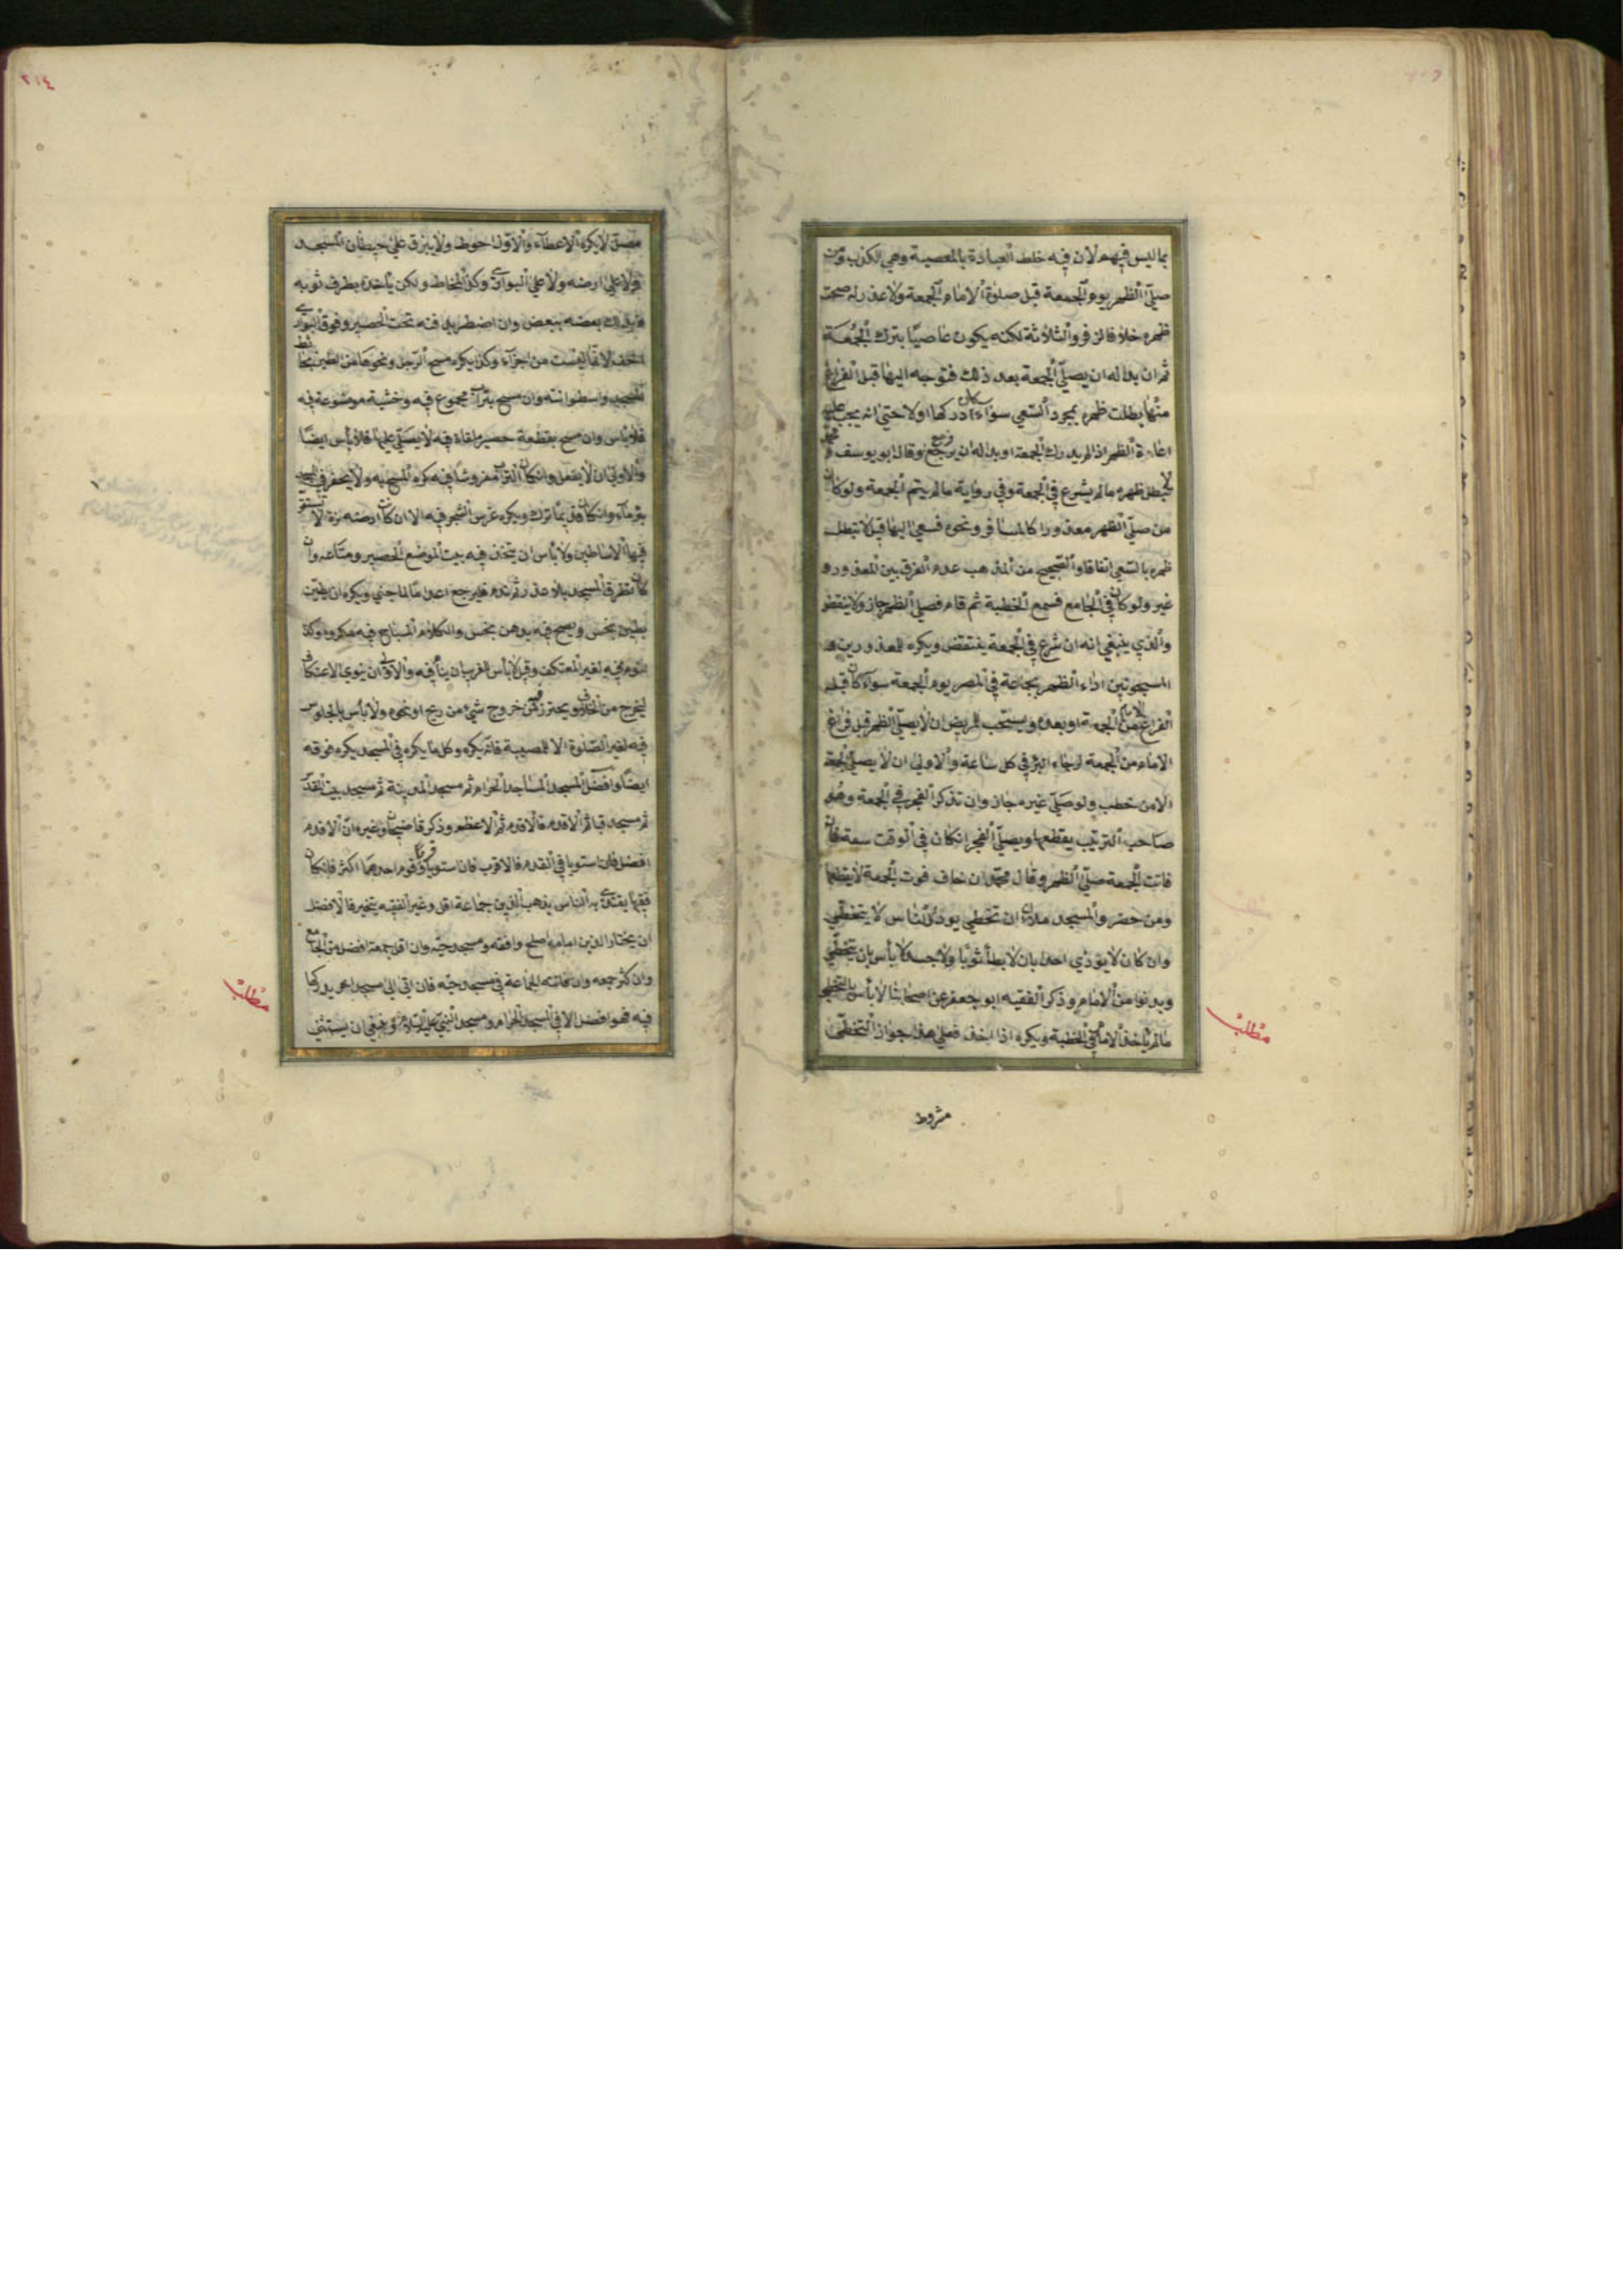 بما ليس فيهم لان فيه خلط العبادة بالمعصية وهي الكذب ومن
صلى الظهر يوم الجمعة قبل صلوة الامام الجمعة ولا عذر له صحت
ظهره خلافا لزفر والثلاثة لكنه يكون عاصيا بترك الجمعة
ثم ان بدا له ان يصلي الجمعة بعد ذلك فتوجه اليها قبل الفراغ
منها بطلت ظهره بمجرد السعي سواء كان ادركها اولا حتي انه يجب عليه
اعادة الظهر اذا لم يدرك الجمعة او بدا له ان يرجع فرجع وقال ابو يوسف و محمد
لا يبطل ظهره ما لم يشرع في الجمعة وفي رواية ما لم يتم الجمعة ولو كان
من صلي الظهر معذورا كالمسافر ونحوه فسعي اليها قبل لا تبطل
ظهره بالسعي اتفاقا والصحيح من المذهب عدم الفرق بين المعذور و
غيره ولو كان في الجامع فسمع الخطبة ثم قام فصلي الظهر جاز ولا ينتقض
والذي ينبغي انه ان شرع في الجمعة ينتقض ويكره للمعذورين و
المسجونين اداء الظهر بجماعة في المصر يوم الجمعة سواء كان قبل
الفراغ الامام من الجمعة او بعده ويستحب للمريض ان لا يصلي الظهر قبل فراغ
الامام من الجمعة لرجاء البرؤ في كل ساعة والاولي ان لا يصلي الجمعة
الا من خطب ولو صلي غيره جاز وان تذكر الفجر في الجمعة وهو
صاحب الترتيب يقطعها ويصلي الفجر ان كان في الوقت سعة فان
فاتت الجمعة صلي الظهر وقال محمد ان خاف فوت الجمعة لا يقطعها
ومن حضر والمسجد ملان ان تخطي يوذي الناس لا يتخطي
وان كان لا يؤذي احدا بان لا يطأ ثوبا ولا جسدا لا بأس بان يتخطي
ويدنوا من الامام وذكر الفقيه ابو جعفر عن اصحابنا لا بأس بالتخطي
ما لم يأخذ الامام في الخطبة ويكره اذا اخذ فعلي هذا جواز التخطي
مشروط
مطلب
٢١٤
مصل لا يكره الاعطاء والاول احوط ولا يبزق علي حيطان المسجد
ولا علي ارضه ولا علي البواري وكذا المخاط ولكن يأخذه بطرف ثوبه
بعضه ببعض وان اضطر يدفنه تحت الحصير وفوق البواري
اخف لانها ليست من اجزاء وكذا يكره مسح الرجل ونحوها من الطين بحائط
المسجد واسطوانته وان مسح بتراب مجموع فيه وخشبة موضوعة فيه
فلا بأس وان مسح بقطعة حصير ملقاة فيه لا يصلي عليها فلا بأس ايضا
والاولي ان لا يفعل وان كان التراب مفروشا فيه كره المسح به ولا يحفر في المسجد
بئر ماء وان كان قديما ترك ويكره غرس الشجر فيه الا ان كان ارضه نزة لا تستقر
فيها الاساطين ولا بأس ان يتخذ فيه بيت لموضع الحصير ومتاعه وان
كان تطرق المسجد بلا عذر ثم ندم فليرجع اعداما لما جني ويكره ان يطين
بطين نجس ويصبح فيه بدهن نجس والكلام المباح فيه مكروه وكذا
النوم فيه لغير المعتكف وقيل لا بأس للغريب ان ينام فيه والاولي ان ينوي الاعتكاف
ليخرج من الخلاف ويحترز عن خروج شيء من ريح او نحوه ولا بأس بالجلوس
فيه لغير الصلوة الا للمصيبة فانه يكره وكل ما يكره في المسجد يكره فوقه
ايضا وافضل المسجد المساجد الحرام ثم مسجد المدينة ثم مسجد بيت المقدس
ثم مسجد قبا ثم الاقدم فالاقدم ثم الاعظم وذكر قاضيخان وغيره ان الاقدم
افضل فان استويا في القدم فالاقرب فان استويا قربا وقوم احدهما اكثر فان كان
فقيها يقتدي به الناس يذهب الي الذين جماعة اقل وغير الفقيه يتخير فالافضل
ان يختار الذين امامه اصلح وافقه ومسجد حيه وان اقل جمعة افضل من الجامع
وان كثر جمعه وان فاتته الجماعة في مسجد حيه فان اتي الي مسجد اخر يدركها
فيه فهو افضل الا في المسجد الحرام ومسجد النبي عليه السلام وينبغي ان يستثني
مطلب